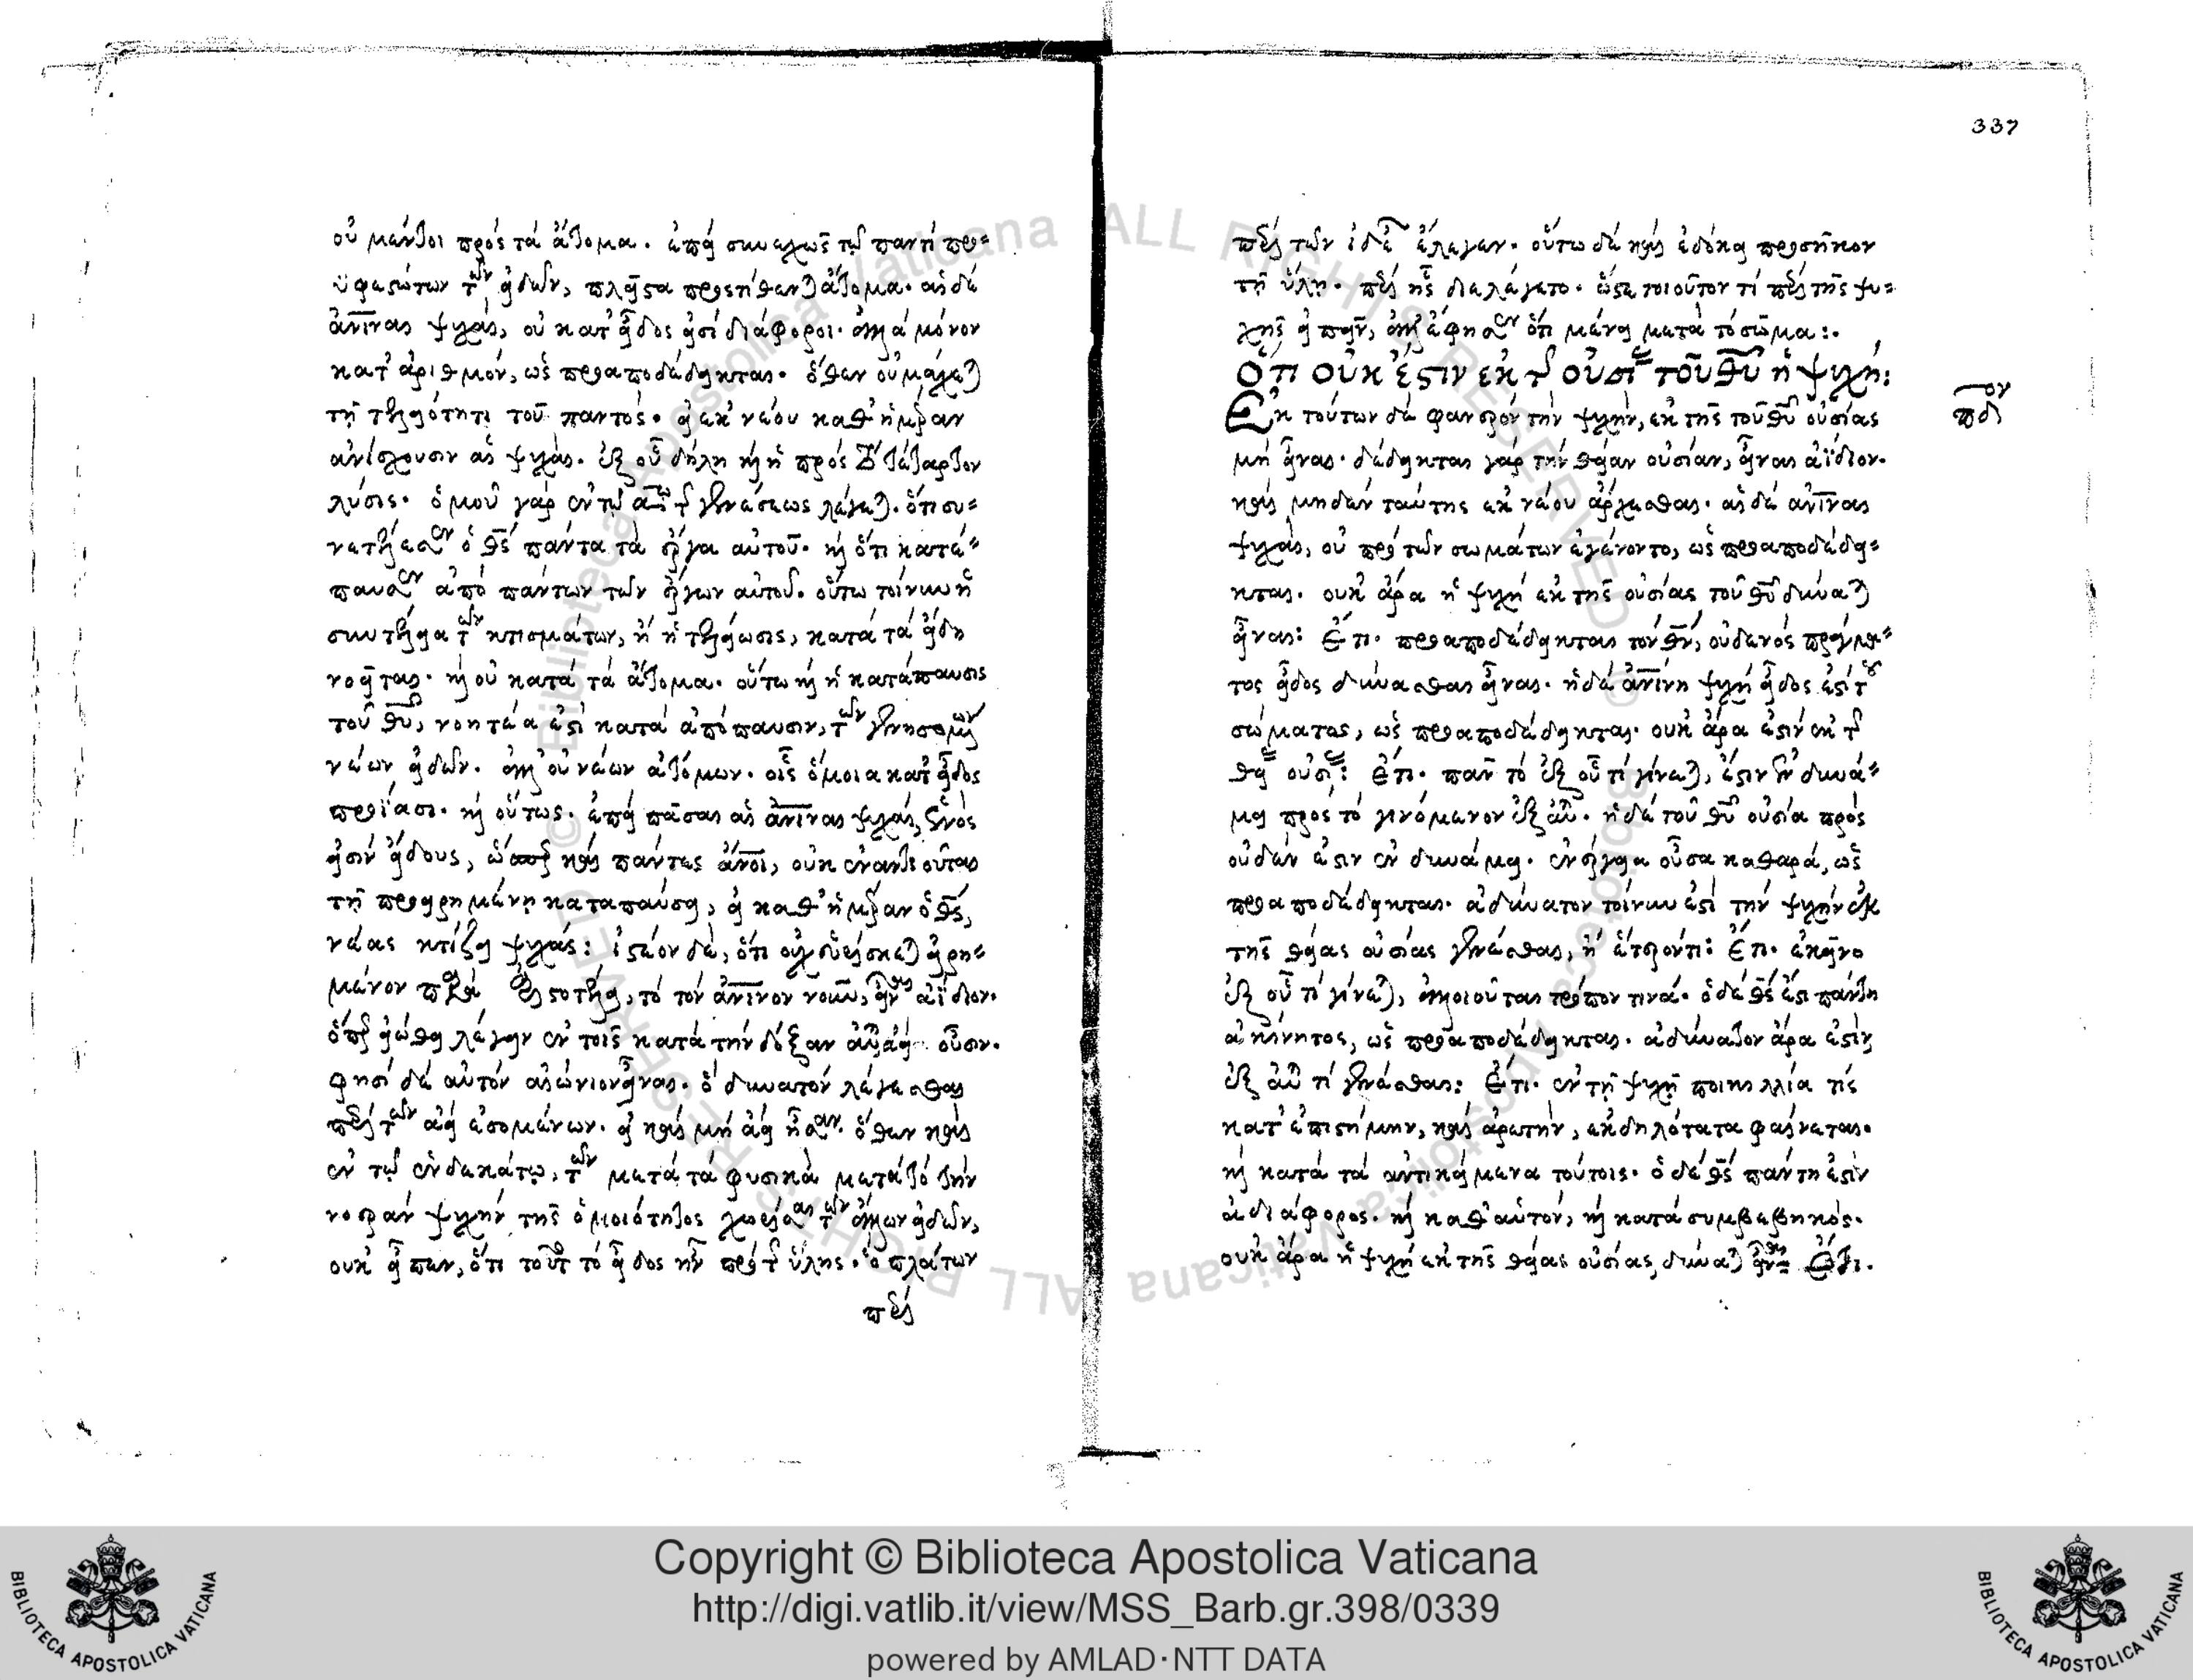 οὐ μέντοι πρὸς τὰ ἄτομα. ἐπεὶ συνεχῶς τῷ παντὶ προ-
ϋφεστώτων τῶν εἰδῶν, πλεῖστα προστίθεται ἄτομα. αἱ δέ
ἀνιναι ψυχαί, οὐ κατ' εἶδος εἰσὶ διάφοροι. ἀλλὰ μόνον
κατ' ἀριθμόν, ὡς προαποδέδεικται. ὅθεν οὐ μάχεται
τῇ τελειότητι τοῦ παντός. εἰ ἐκ νέου καθ' ἡμέραν
ἀνίσχουσιν αἱ ψυχαί. ἐξ οὗ δήλη καὶ ἡ πρὸς τὸ τέταρτον
λύσις. ὁμοῦ γὰρ ἐν τῷ αῳ τῆς γενέσεως λέγεται. ὅτι συ-
νετέλεσεν ὁ θς πάντα τὰ ἔργα αὐτοῦ. καὶ ὅτι κατέ-
παυσεν ἀπὸ πάντων τῶν ἔργων αὐτοῦ. οὕτω τοίνυν ἡ
συντέλεια τῶν κτισμάτων, ἢ ἡ τελείωσις, κατὰ τὰ εἴδη
νοεῖται. καὶ οὐ κατὰ τὰ ἄτομα. οὕτω καὶ ἡ κατάπαυσις
τοῦ θυ, νοητέα ἐστὶ κατὰ ἀπόπαυσιν, τῶν γενησομένων
νέων εἰδῶν. ἀλλ' οὐ νέων ἀτόμων. οἷς ὅμοια κατ' εἶδος
προΐασι. καὶ οὕτως. ἐπεὶ πᾶσαι αἱ ἀνιναι ψυχαί, ἑνός
εἰσὶν εἴδους, ὥσπερ καὶ πάντες ἄνοι, οὐκ ἐναντιοῦται
τῇ προειρημένῃ καταπαύσει, εἰ καθ' ἡμέραν ὁ θς,
νέας κτίζει ψυχάς: ἰστέον δὲ, ὅτι οὐχ εὑρίσκεται εἰρη-
μένον παρὰ Ἀριστοτέλει, τὸ τὸν ἀνινον νοῦν, εἶναι ἀΐδιον.
ὅπερ εἴωθε λέγειν ἐν τοῖς κατὰ τὴν δόξαν αὐτοῦ ἀεὶ οὖσιν.
φησὶ δὲ αὐτὸν αἰώνιον εἶναι. ὃ δυνατὸν λέγεσθαι
περὶ τῶν ἀεὶ ἐσομένων. εἰ καὶ μὴ ἀεὶ ἦσαν. ὅθεν καὶ
ἐν τῷ ἑνδεκάτῳ, τῶν μετὰ τὰ φυσικὰ μετὰ τὸ τὴν
νοερὰν ψυχὴν τῆς ὁμοιότητος χωρίσαι τῶν ἄλλων εἰδῶν,
οὐκ εἶπεν, ὅτι τοῦτο τὸ εἶδος ἦν πρὸ τῆς ὕλης. ὃ πλάτων
περὶ
337
περὶ τῶν ἰδεῶν ἔλεγεν. οὕτω δὲ καὶ ἐδόκει προσῆκον
τῇ ὕλῃ. περὶ ἧς διελέγετο. ὥστε τοιοῦτον τί περὶ τῆς ψυ-
χῆς εἰπεῖν, ἀλλ' ἔφησεν ὅτι μένει μετὰ τὸ σῶμα:.
Ὅτι οὐκ ἔστιν ἐκ τῆς οὐσίας τοῦ θυ ἡ ψυχή:
Ἐκ τούτων δὲ φανερὸν τὴν ψυχὴν, ἐκ τῆς τοῦ θυ οὐσίας
μὴ εἶναι. δέδεικται γὰρ τὴν θείαν οὐσίαν, εἶναι ἀΐδιον.
καὶ μηδὲν ταύτης ἐκ νέου ἄρχεσθαι. αἱ δὲ ἀνιναι
ψυχαὶ, οὐ πρὸ τῶν σωμάτων ἐγένοντο, ὡς προαποδέδει-
κται. οὐκ ἄρα ἡ ψυχὴ ἐκ τῆς οὐσίας τοῦ θυ δύναται
εἶναι: Ἔτι. προαποδέδεικται τὸν θν, οὐδενὸς πράγμα-
τος εἶδος δύνασθαι εἶναι. ἡ δὲ ἀνινη ψυχὴ εἶδος ἐστὶ τοῦ
σώματος, ὡς προαποδέδεικται. οὐκ ἄρα ἐστὶν ἐκ τῆς
θείας οὐσίας: Ἔτι. πᾶν τὸ ἐξ οὗ τί γίνεται, ἔστιν ἐν δυνά-
μει πρὸς τὸ γινόμενον ἐξ αὐτοῦ. ἡ δὲ τοῦ θυ οὐσία πρὸς
οὐδὲν ἐστιν ἐν δυνάμει. ἐνέργεια οὖσα καθαρά, ὡς
προαποδέδεικται. ἀδύνατον τοίνυν ἐστὶ τὴν ψυχὴν ἐκ
τῆς θείας οὐσίας γενέσθαι, ἢ ἕτερόν τι: Ἔτι. ἐκεῖνο
ἐξ οὗ τί γίνεται, ἀλλοιοῦται τρόπον τινά. ὁ δὲ θς ἐστὶ πάντη
ἀκίνητος, ὡς προαποδέδεικται. ἀδύνατον ἄρα ἐστὶν
ἐξ αὐτοῦ τί γενέσθαι: Ἔτι. ἐν τῇ ψυχῇ ποικιλλία τίς
κατ' ἐπιστήμην, καὶ ἀρετὴν, ἐκδηλότατα φαίνεται.
καὶ κατὰ τὰ ἀντικείμενα τούτοις. ὁ δὲ θς πάντη ἐστὶν
ἀδιάφορος. καὶ καθ' αὑτόν, καὶ κατὰ συμβεβηκός.
οὐκ ἄρα ἡ ψυχὴ ἐκ τῆς θείας οὐσίας, δύναται εἶναι: Ἔτι.
Copyright © Biblioteca Apostolica Vaticana
http://digi.vatlib.it/view/MSS_Barb.gr.398/0339
powered by AMLAD·NTT DATA
BIBLIOTECA APOSTOLICA VATICANA
BIBLIOTECA APOSTOLICA VATICANA